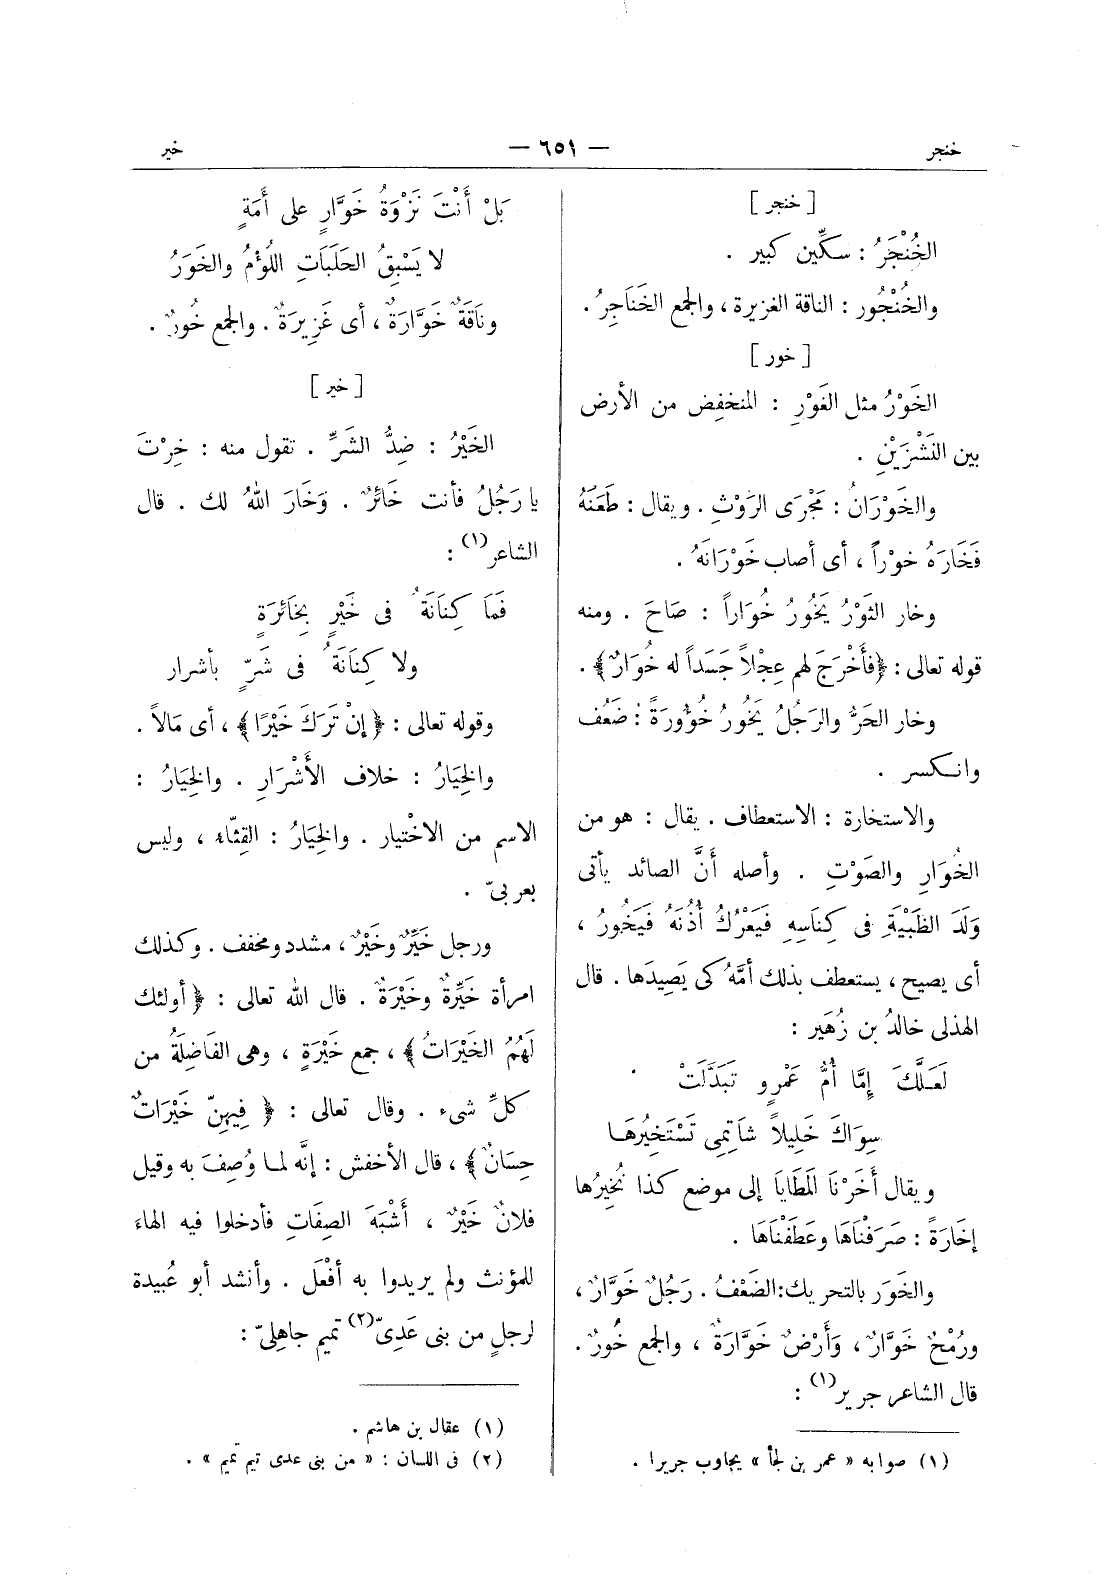 خنجر — ٦٥١ — خير
[ خنجر ]
الخُنْجَرُ : سكِّين كبير .
والخُنْجُور : الناقة الغزيرة ، والجمع الخَنَاجِرُ .
[ خور ]
الخَوْرُ مثل الغَوْرِ : المنخفِض من الأرض
بين النَشْزَيْنِ .
والخَوْرَانُ : مَجْرَى الرَوْثِ . ويقال : طَعَنَهُ
فَخَارَهُ خوْراً ، أى أصاب خَوْرَانَهُ .
وخار الثَوْرُ يَخُورُ خُوَاراً : صَاحَ . ومنه
قوله تعالى : ﴿فأَخْرَجَ لهم عِجْلاً جَسَداً له خُوَارٌ﴾ .
وخار الحَرُّ والرَجُلُ يَخُورُ خُؤُورَةً : ضَعُف
وانكسر .
والاستخارة : الاستعطاف . يقال : هو من
الخُوَارِ والصَوْتِ . وأصله أنَّ الصائد يأتى
وَلَدَ الظَبْيَةِ فى كِنَاسِهِ فَيَعْرُكُ أُذُنَهُ فَيَخُورُ ،
أى يصيح ، يستعطف بذلك أمَّهُ كى يَصِيدَها . قال
الهذلى خالدُ بن زُهَير :
لَعَلَّكَ إِمَّا أُمُّ عَمْرٍو تَبَدَّلَتْ
سِوَاكَ خَلِيلاً شَاتِمِى تَسْتَخِيرُهَا
ويقال أَخَرْنَا المَطَايَا إلى موضع كذا نُخِيرُها
إخَارَةً : صَرَفْنَاهَا وعَطَفْنَاهَا .
والخَوَر بالتحريك : الضَعْفُ . رَجُلٌ خَوَّارٌ ،
ورُمْحٌ خَوَّارٌ ، وَأَرْضٌ خَوَّارَةٌ ، والجمع خُورٌ .
قال الشاعر جرير(١) :
(١) صوابه « عمر بن لجأ » يجاوب جريرا .
بَلْ أَنْتَ نَزْوَةُ خَوَّارٍ على أَمَةٍ
لا يَسْبِقُ الحَلَبَاتِ اللُؤْمُ والخَوَرُ
ونَاقَةٌ خَوَّارَةٌ ، أى غَزِيرَةٌ . والجمع خُورٌ .
[ خير ]
الخَيْرُ : ضِدُّ الشَرِّ . تقول منه : خِرْتَ
يا رَجُلُ فأنت خَائِرٌ . وَخَارَ اللهُ لك . قال
الشاعر(١) :
فَمَا كِنَانَةُ فى خَيْرٍ بِخَائِرَةٍ
ولا كِنَانَةُ فى شَرٍّ بأشرار
وقوله تعالى : ﴿إنْ تَرَكَ خَيْرًا﴾ ، أى مَالاً .
والخِيَارُ : خلاف الأَشْرَارِ . والخِيَارُ :
الاسم من الاخْتيار . والخِيَارُ : القِثّاء ، وليس
بعربىّ .
ورجل خَيِّرٌ وخَيْرٌ ، مشدد ومخفف . وكذلك
امرأة خَيِّرةٌ وخَيْرَةٌ . قال الله تعالى : ﴿أولئك
لَهُمُ الخَيْرَاتُ﴾ ، جمع خَيْرَةٍ ، وهى الفَاضِلَةُ من
كلِّ شىء . وقال تعالى : ﴿فِيهِنّ خَيْرَاتٌ
حِسَانٌ﴾ ، قال الأخفش : إنَّه لما وُصِفَ به وقيل
فلانٌ خَيْرٌ ، أَشْبَهَ الصِفَاتِ فأدخلوا فيه الهاءَ
للمؤنث ولم يريدوا به أفْعَل . وأنشد أبو عُبيدة
لرجلٍ من بنى عَدِىّ(٢) تميم جاهلىّ :
(١) عقال بن هاشم .
(٢) فى اللسان : « من بنى عدى تيم تميم » .